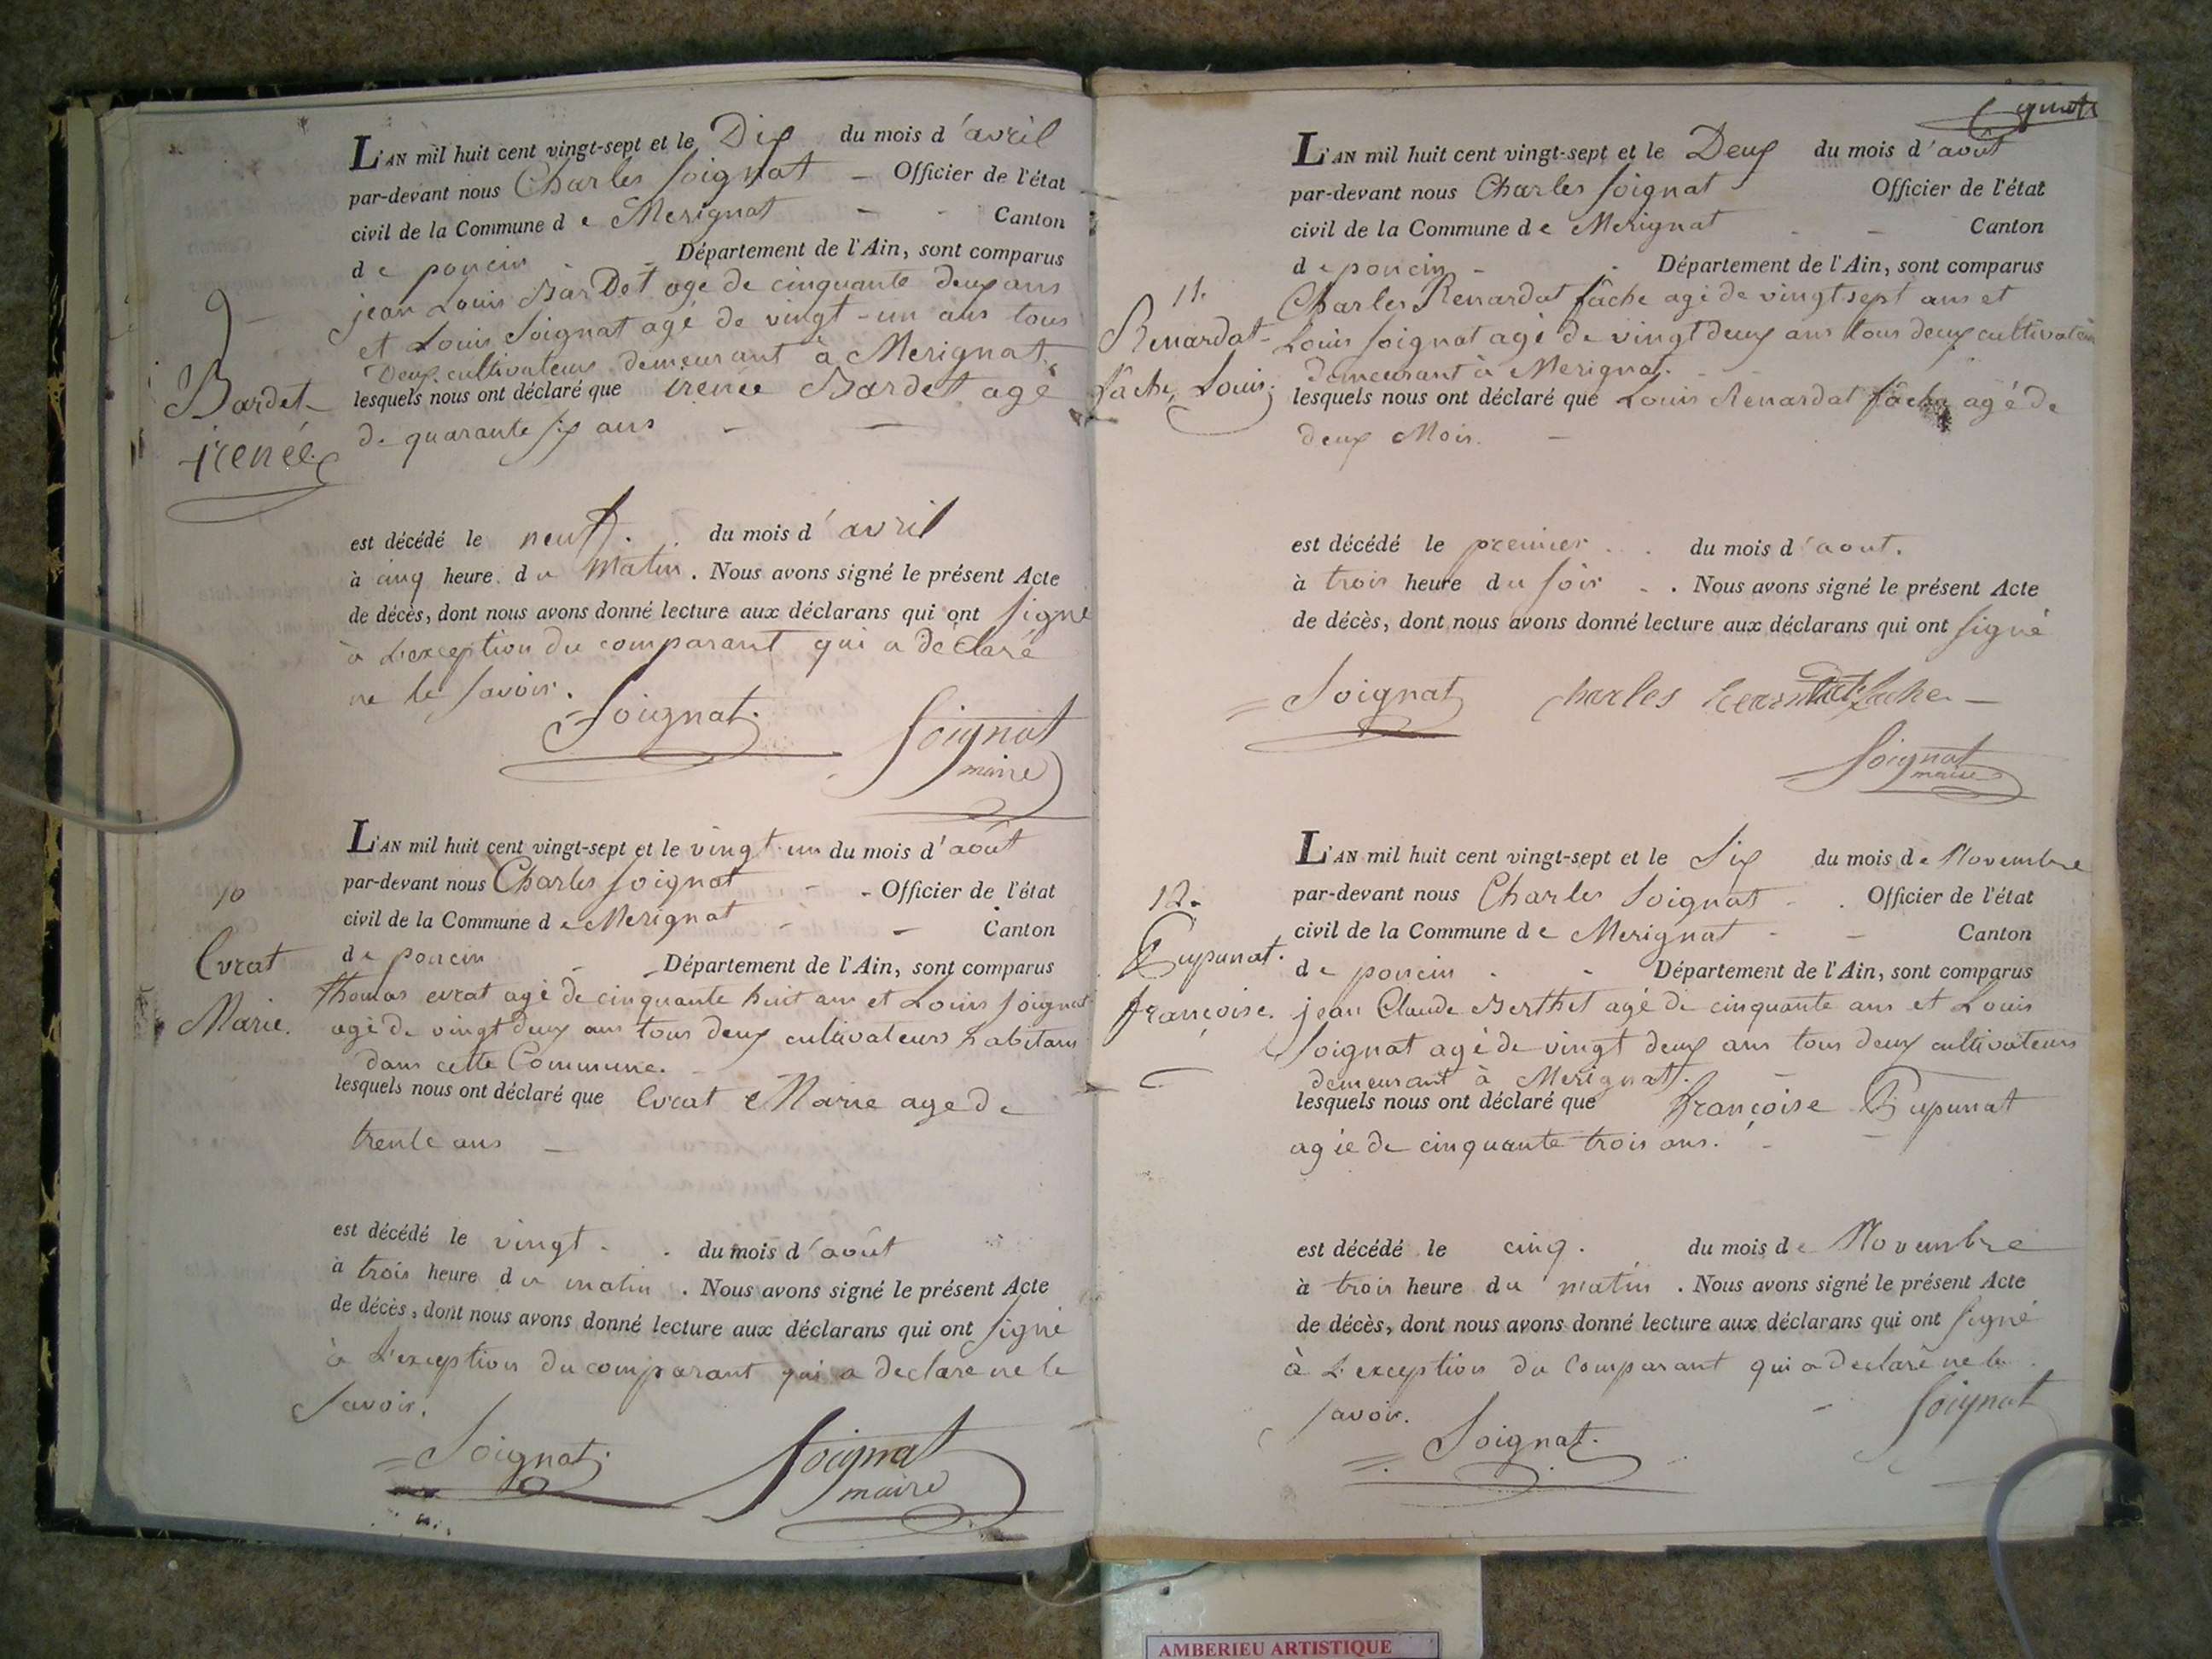 9
Bardet
irenée
L'AN mil huit cent vingt-sept et le Dix du mois d'avril
par-devant nous Charles Soignat Officier de l'état
civil de la Commune de Merignat Canton
de poncin Département de l'Ain, sont comparus
jean Louis Bardet agé de cinquante deux ans
et Louis Soignat agé de vingt-un ans tous
Deux cultivateurs demeurant à Merignat.
lesquels nous ont déclaré que irenée Bardet agé
de quarante six ans
est décédé le neuf du mois d'avril
à cinq heure du Matin. Nous avons signé le présent Acte
de décès, dont nous avons donné lecture aux déclarans qui ont signé
à L'exception du comparant qui a déclaré
ne le savoir.
Soignat
Soignat
maire
10
Evrat
Marie.
L'AN mil huit cent vingt-sept et le vingt-un du mois d'août
par-devant nous Charles Soignat Officier de l'état
civil de la Commune de Merignat Canton
de poncin Département de l'Ain, sont comparus
thomas evrat agé de cinquante huit ans et Louis Soignat
agé de vingt deux ans tous deux cultivateurs habitans
dans cette Commune.
lesquels nous ont déclaré que Evrat Marie age de
trente ans
est décédé le vingt du mois d'août
à trois heure du matin. Nous avons signé le présent Acte
de décès, dont nous avons donné lecture aux déclarans qui ont signé
à L'exception du comparant qui a declare ne le
savoir.
Soignat
Soignat
maire
11.
Renardat
fâche, Louis.
L'AN mil huit cent vingt-sept et le Deux du mois d'août
par-devant nous Charles Soignat Officier de l'état
civil de la Commune de Merignat Canton
de poncin Département de l'Ain, sont comparus
Charles Renardat fâche agé de vingt sept ans et
Louis Soignat agé de vingt deux ans tous deux cultivateurs
demeurant à Merignat.
lesquels nous ont déclaré que Louis Renardat fâche agé de
deux Mois.
est décédé le premier du mois d'aout.
à trois heure du soir. Nous avons signé le présent Acte
de décès, dont nous avons donné lecture aux déclarans qui ont signé
Soignat Charles fache
Soignat
maire
12.
françoise.
L'AN mil huit cent vingt-sept et le Six du mois de Novembre
par-devant nous Charles Soignat Officier de l'état
civil de la Commune de Merignat Canton
de poncin Département de l'Ain, sont comparus
jean Claude Berthet agé de cinquante ans et Louis
Soignat agé de vingt deux ans tous deux cultivateurs
demeurant à Merignat.
lesquels nous ont déclaré que françoise
agée de cinquante trois ans.
est décédé le cinq. du mois de Novembre
à trois heure du matin. Nous avons signé le présent Acte
de décès, dont nous avons donné lecture aux déclarans qui ont signé
à L'exception du Comparant qui a declaré ne le
savoir.
Soignat
Soignat
AMBERIEU ARTISTIQUE